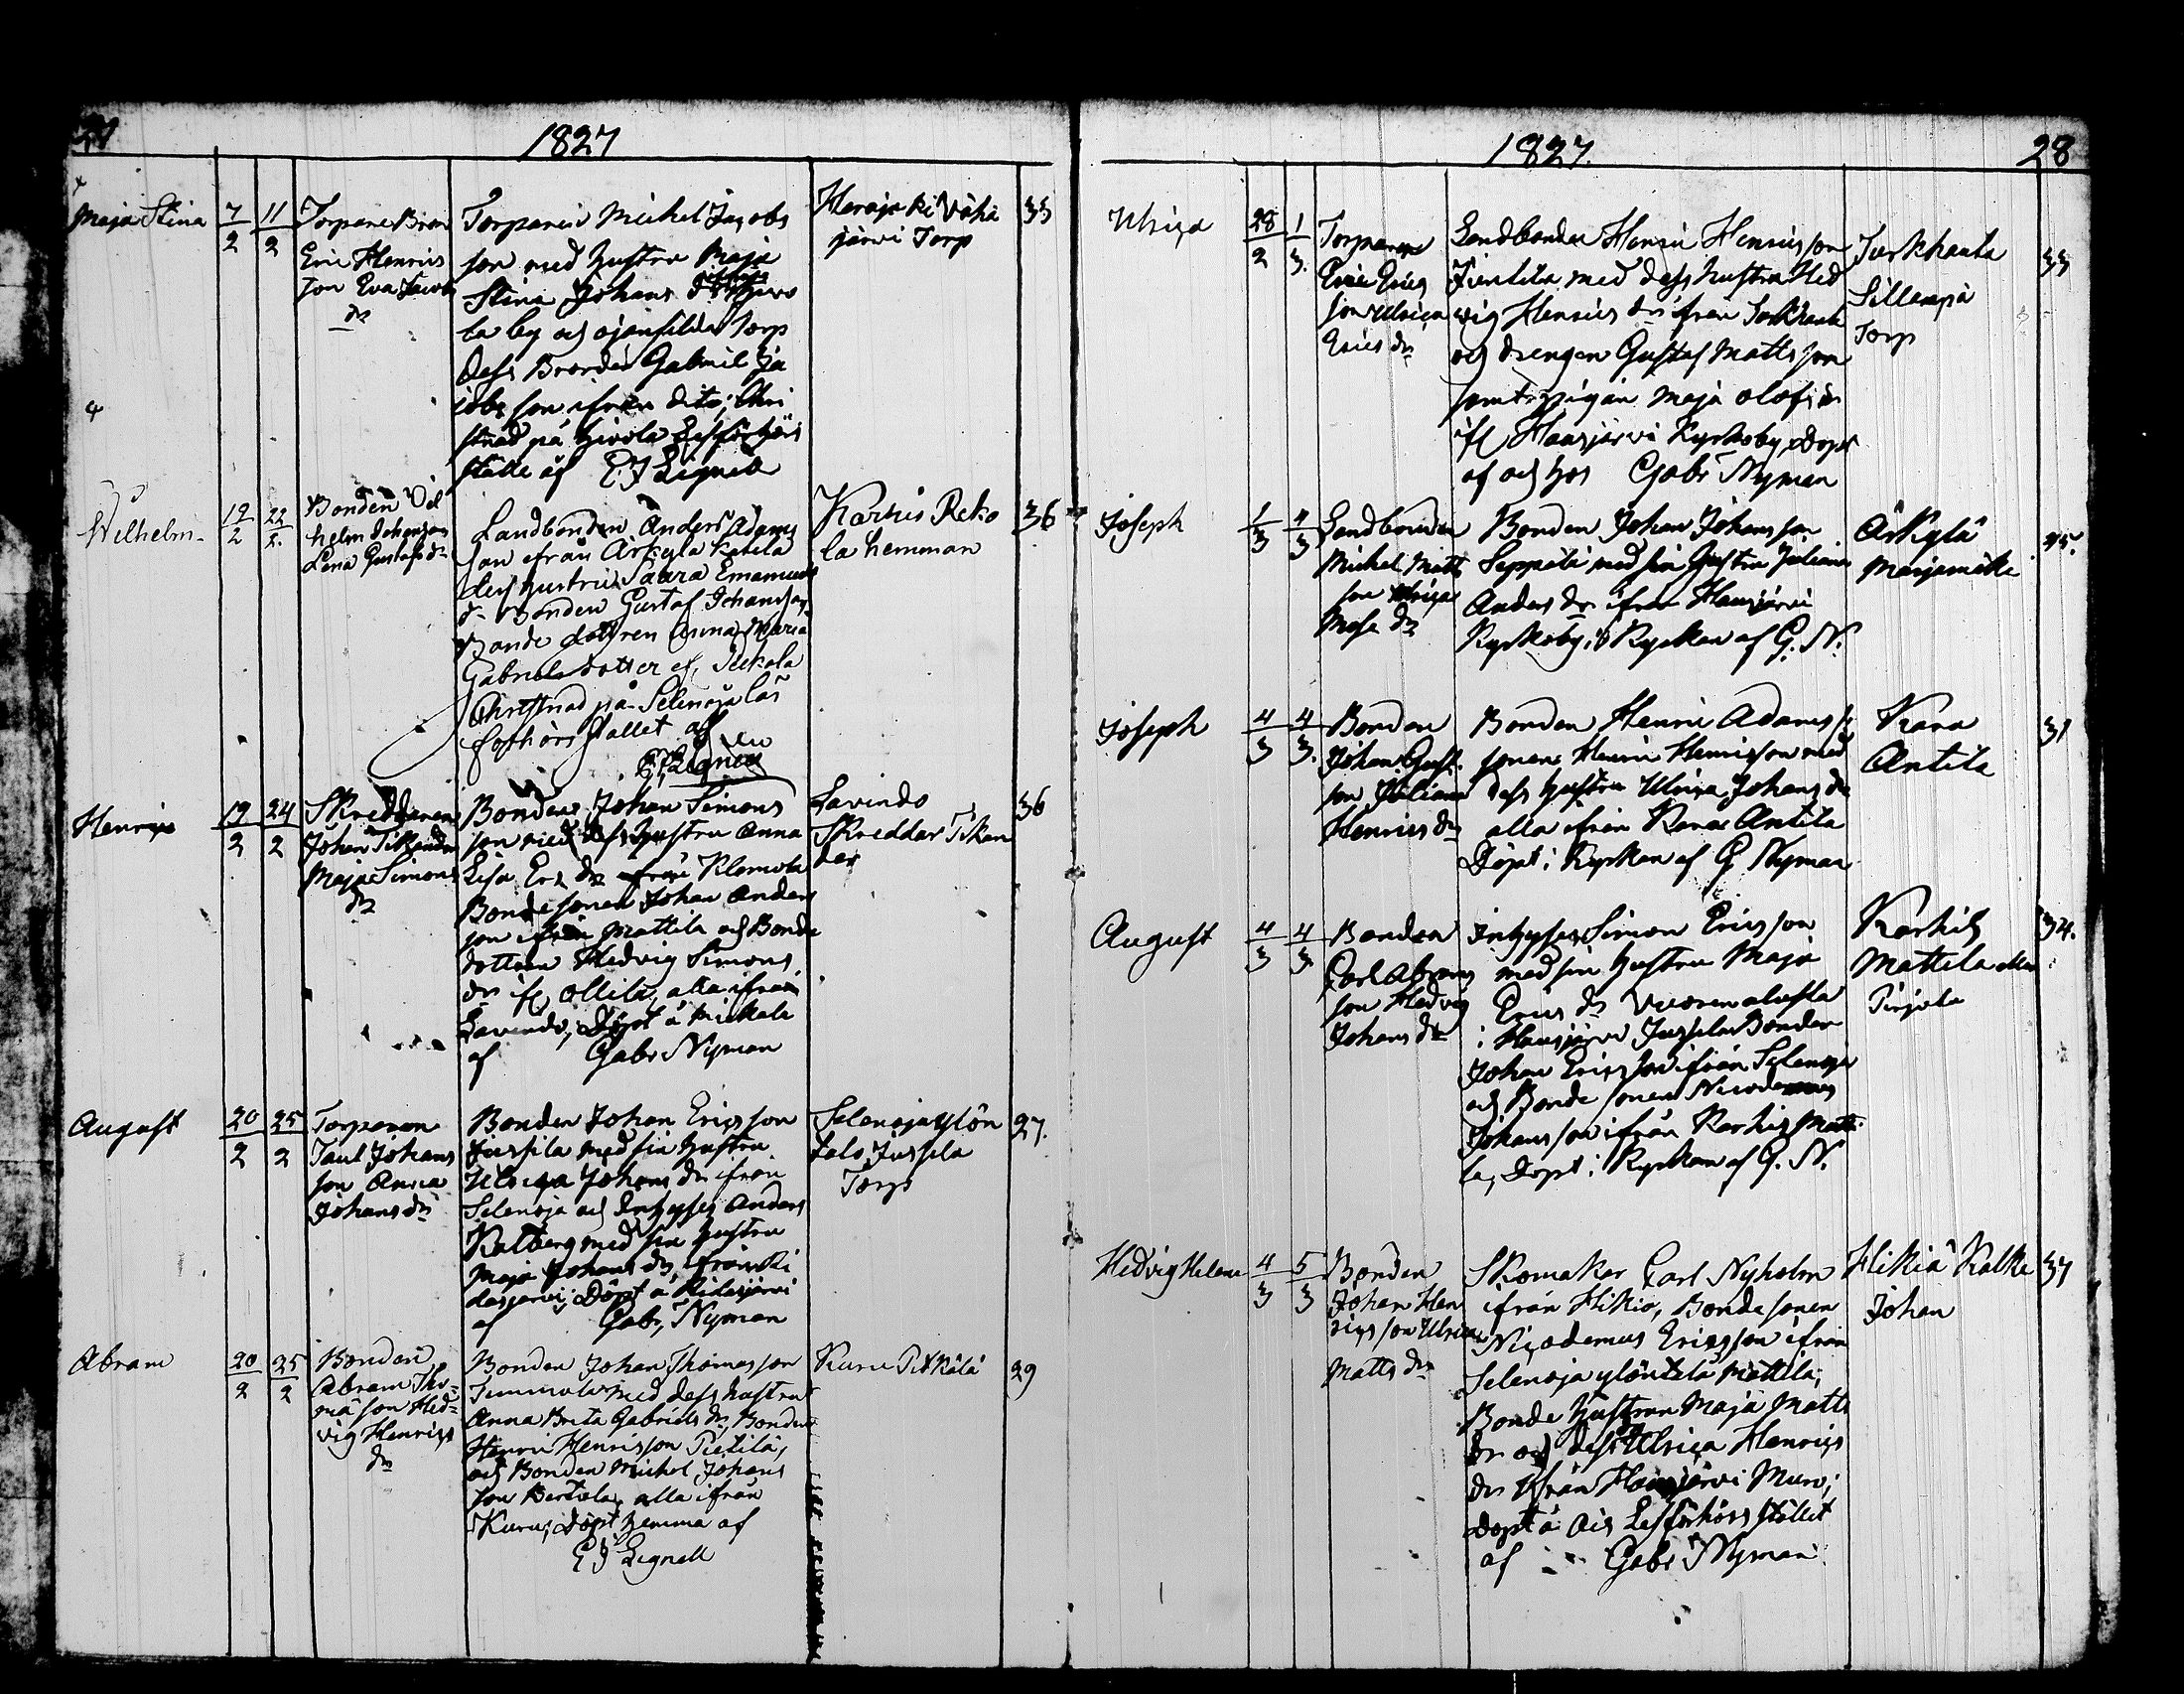 27
1827
Maja Stina
7/2
11/2
Eric Henrics
son Eva Jacobs
dr
Torparen Michel Jacobs
son med hustru Maja
Stina Johans
la by och Torp
dess Brorden Gabriel Ja
cobs son ifrån dito; Chri
stnad på Hivola Läsförhörs
ställe af E J Lignell
Herajoki Vähä
järvi Torp
35
Wilhelm
19/2
22/2.
Bonden Vil
helm Johansson
Lena Gustafs dr
Landbonden Anders Adams
son ifrån Arkyla
dess hustru Saara Emanuels
dr Bonden Gustaf Johansson
Bonde dottren Anna Maria
Gabriels dotter
Christnad på Selenoja läs
förhörs stället af
E J Lignell
Karhis Reko
la hemman
36
Henric
19/2
24/2
Skreddaren
Johan Tikander
Maja Simons
dr
Bonden Johan Simons
son med dess hustru Anna
Lisa Er dr från Klemola
Bonde sonen Johan Anders
son ifrån Mattila och Bonde
dottren Hedvig Simons
dr if. Ollila, alla ifrån
Lavindo; Döpt å Mickala
af Gabr Nyman
Lavindo
Skreddar Tikan
der
36
August
20/2
25/2
Torparen
Paul Johans
son Anna
Johans dr
Bonden Johan Erics son
Jussila med sin hustru
Ulrica Johans dr ifrån
Selenoja och Inhyses Anders
Kalberg med sin hustru
Maja Johans dr, ifrån Ri
dasjärvi; Döpt å Ridasjärvi
af Gabr, Nyman
Selenoja Ylön
talo Jussila
Torp
27.
Abram
20/2
25/2
Bonden
Abram Tho-
mä son Hed-
vig Henrics
dr
Bonden Johan Thomas son
Tummola med dess hustru
Anna Brita Gabriels dr, Bonden
Henric Henricsson Pietilä,
och Bonden Michel Johans
son Bertula, alla ifrån
Kuru; Döpt hemma af
E J Lignell
Kuru Pitkälä
29
1827.
28
Ulrica
28/2
1/3.
Torparen
Eric Erics
son Ulrica
Erics dr
Landbonden Henric Henricsson
med dess hustru Hed
vig Henrics dr ifrån
och drengen Gustaf Matts son
samt pigan Maja Olofs dr
if Hausjärvi Kyrkoby, Döpt
af och hos Gabr Nyman
Turkhauta
Sillanpä
Torp
33
Joseph
1/3
4/3
Landbonden
Michel Matts
son Ulrica
Mose dr
Bonden Johan Johans son
Seppälä med sin hustru Juliana
Anders dr ifrån Hausjärvi
Kyrkoby; i Kyrkan af G. N.
Ärkylä
Marjamäki
45.
Joseph
4/3
4/3.
Bonden
Johan Gust.
son Juliana
Henrics dr
Bonden Henric Adams s.
sonen Henric Henricson med
dess hustru Ulrica Johans dr
alla ifrån Kara Antila
Döpt i Kyrkan af G Nyman
Kara
Antila
31
August
4/3
4/3
Bonden
Carl Abrams
son Hedvig
Johans dr
Inhyses Simon Erics son
med sin hustru Maja
Erics dr
i Hausjärvi Jussila Bonden
Johan Ericsson ifrån Selenoja
och Bonde sonen Nicodemus
Johans son ifrån Karhis Matti
la, Döpt i Kyrkan af G. N.
Karhis
Mattila eller
Pirjola
34.
Hedvig Helena
4/3
5/3
Bonden
Johan Hen
rics son Ulrica
Matts dr
Skomakar Carl Nyholm
ifrån Hikiä, Bonde sonen
Nicodemus Ericsson ifrån
Selenoja ylöntola Mattila,
Bonde hustrun Maja Matts
dr och Ulrica Henrics
dr ifrån Hausjärvi Muro;
döpt å Läsförhörs stället
af Gabr Nyman
Hikiä Kalke
Johan
37